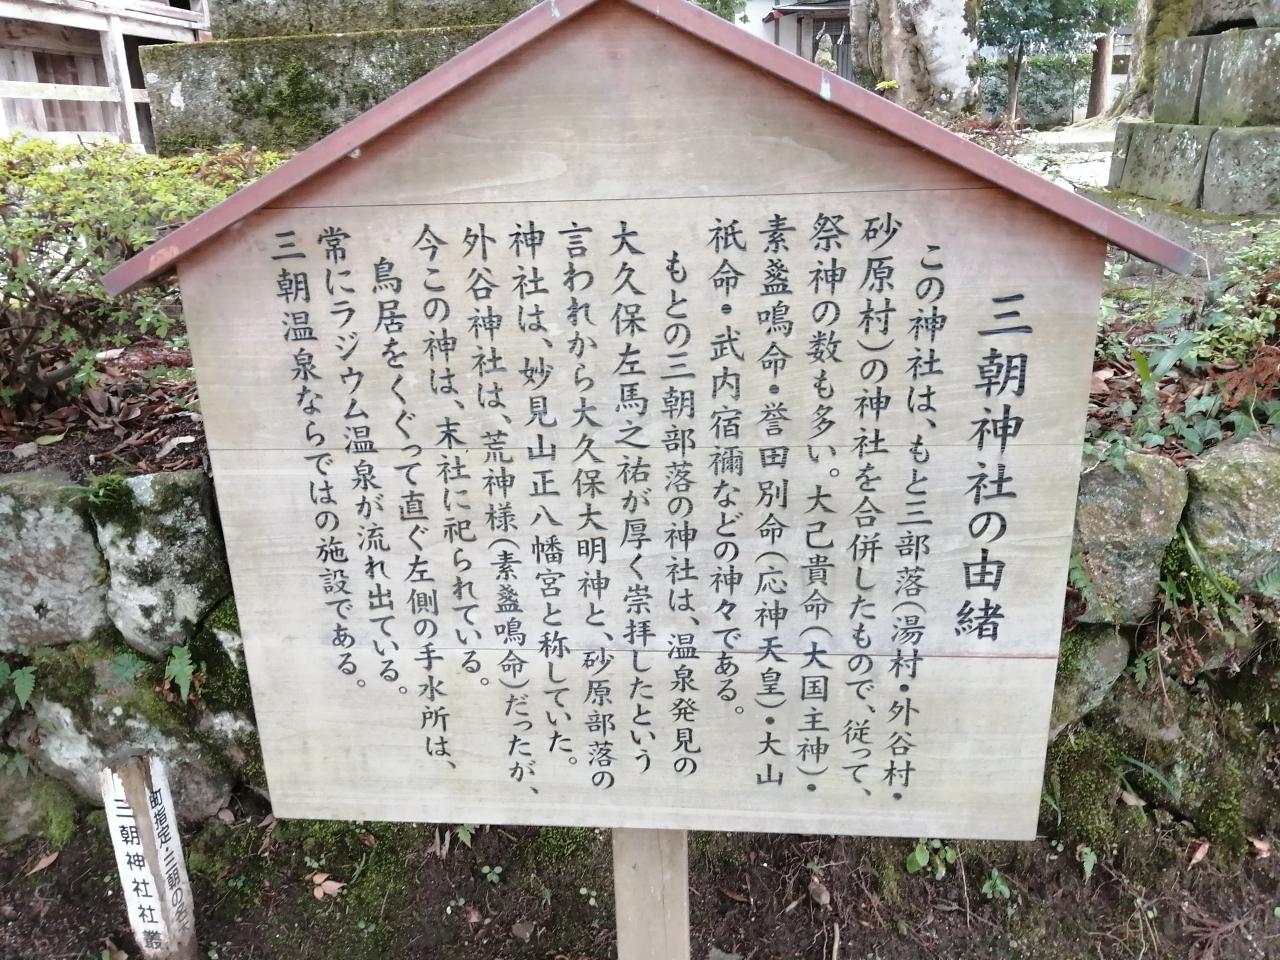 三朝神社の由緒
この神社は、もと三部落(湯村・外谷村・
砂原村)の神社を合併したもので、従って、
祭神の数も多い。大己貴命(大国主神)・
素盞鳴命・誉田別命(応神天皇)・大山
祇命・武内宿禰などの神々である。
もとの三朝部落の神社は、温泉発見の
大久保左馬之祐が厚く崇拝したという
言われから大久保大明神と、砂原部落の
神社は、妙見山正八幡宮と称していた。
外谷神社は、荒神様(素盞鳴命)だったが、
今この神は、末社に祀られている。
鳥居をくぐって直ぐ左側の手水所は、
常にラジウム温泉が流れ出ている。
三朝温泉ならではの施設である。
町指定・三朝の名木
三朝神社社叢